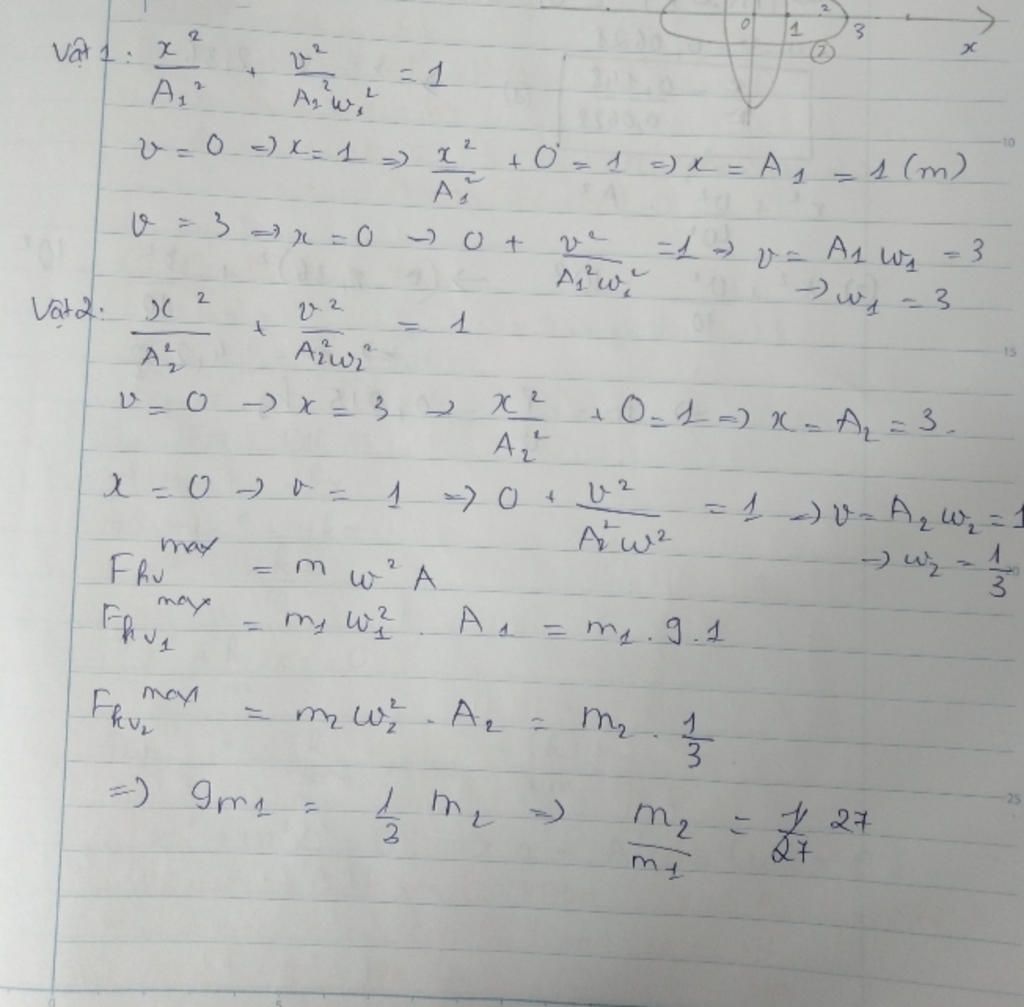 0 1 2 3
② x
Vật 1: x²/A₁² + v²/A₁²w₁² = 1
v = 0 => x = 1 => x²/A₁² + 0 = 1 => x = A₁ = 1 (m)
v = 3 => x = 0 -> 0 + v²/A₁²w₁² = 1 => v = A₁ w₁ = 3
-> w₁ = 3
Vật 2: x²/A₂² + v²/A₂²w₂² = 1
v = 0 -> x = 3 -> x²/A₂² + 0 = 1 => x = A₂ = 3.
x = 0 -> v = 1 => 0 + v²/A₂²w² = 1 => v = A₂ w₂ = 1
-> w₂ = 1/3
Fkv max = m w² A
Fkv₁ max = m₁ w₁² . A₁ = m₁ . 9 . 1
Fkv₂ max = m₂ w₂² . A₂ = m₂ . 1/3
=> 9m₁ = 1/3 m₂ => m₂/m₁ = 27
10
15
25
5